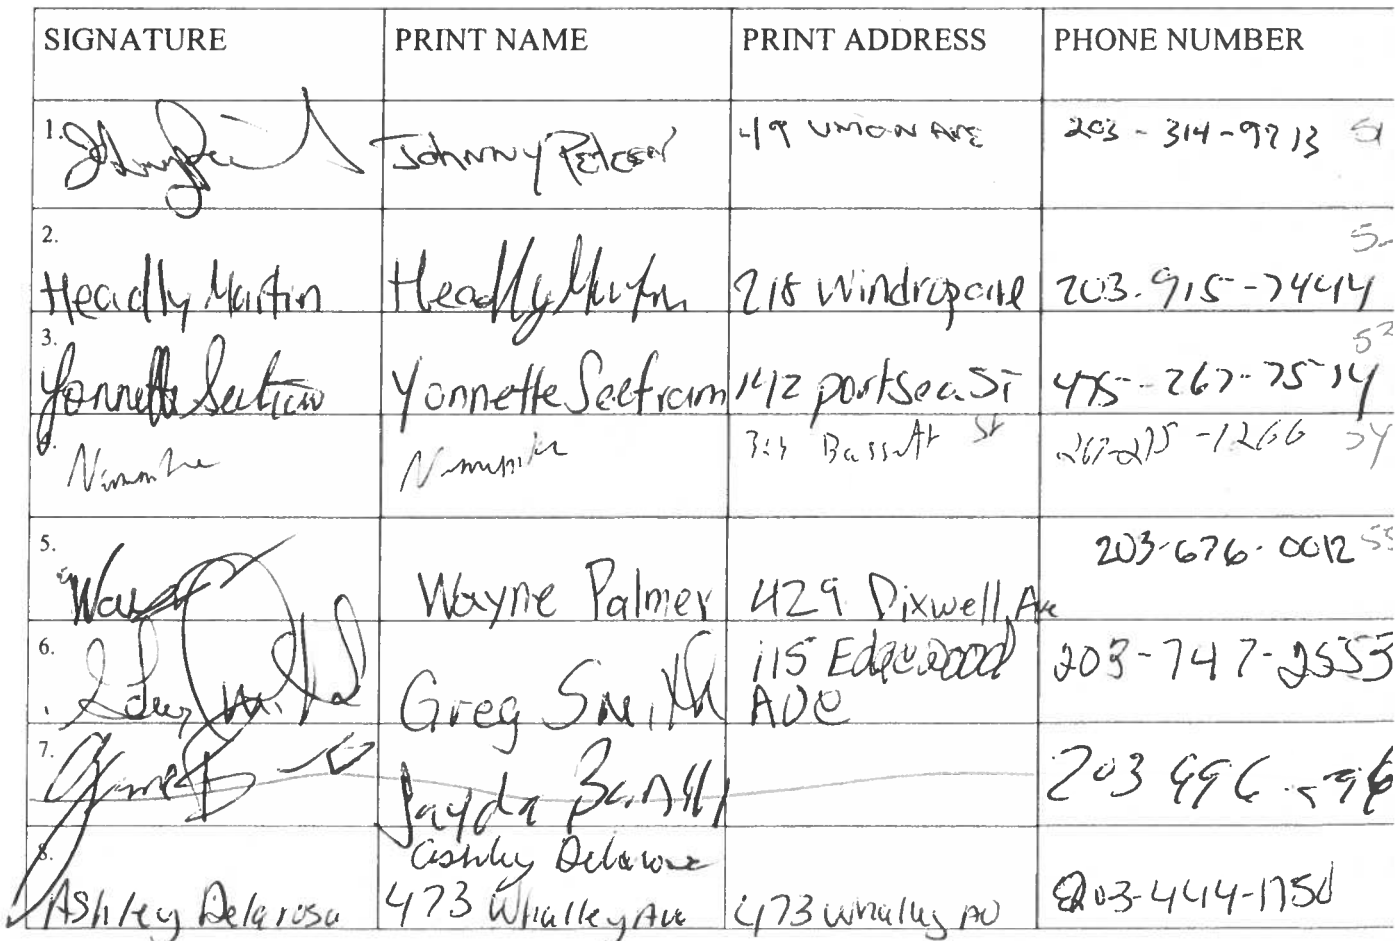 SIGNATURE PRINT NAME PRINT ADDRESS PHONE NUMBER
1. Johnny 49 UNION AVE 203-314-9713 51
2.
Headly Martin Headly Martin 218 203-915-7444
3.
Yonnette Yonnette Seetram 142 portsea St 475-267-7514
Bassett St
5. 203-676-0012 55
Wayne Palmer 429 Dixwell Ave
6. Greg Smith 115 Edgewood 203-747-2555
AVE
7. Jayda 203 996
8. Ashley Delarosa
Ashley Delarosa 473 Whalley Ave 473 Whalley AV 203-444-1750